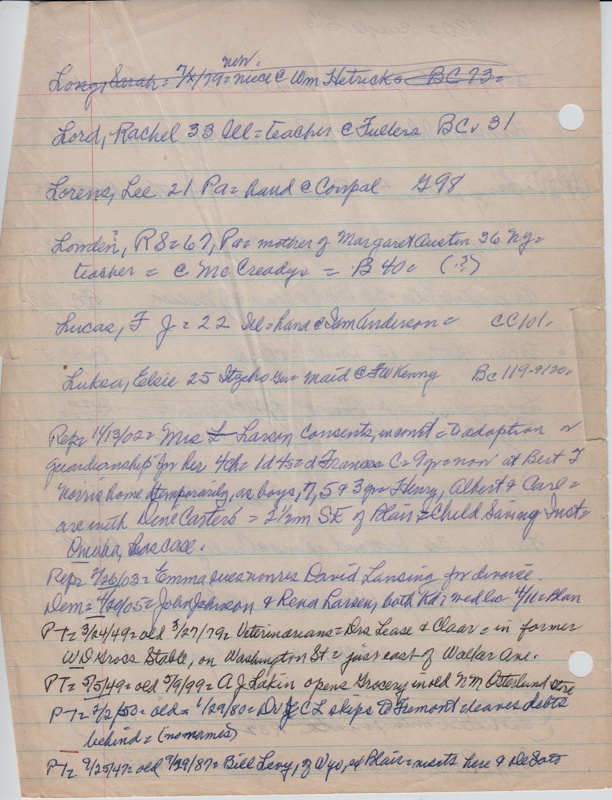 new.
Long, Sarah = 7/X/79 = niece @ Wm Hetrick = BC 73 =
Lord, Rachel 33 Ill = teacher @ Fullers BC 31
Lorens, Lee 21 Pa = hand @ Compal G98
Lomden?, R S = 67, Pa = mother of Margaret Austin 36 Ny =
teacher = @ McCready = = B 40 = (?)
Lucas, F J = 22 Ill = hand @ Sam Anderson = CC 101.
Luksa, Elsie 25 Itzeho Ger = maid @ F W Kenny BC 119-9120 =
Rep = 1/13/02 = Mrs L Larsen consents, in court = to adoption or
guardianship for her 4ch = 1d 4s = d Frances C = 9yr = now at Bert T
Norris home temporarily, as boys, 7, 5 & 3 yr = Henry, Albert & Carl =
are with Dene Carters = 2½m SE of Blair = Child Saving Inst =
Omaha, has case.
Rep = 2/26/03 = Emma sues nonres David Lansing for divorce.
Dem = 4/20/05 = John Johnson & Rena Larsen, both Kd = wed Co 4/11 = Blan
PT = 3/24/49 = old 3/27/79 = Veterinarians = Drs Lease & Clear = in former
W D Gross Stable, on Washington St = just east of Walker Ave.
PT = 5/5/49 = old 5/9/99 = A J Lakin opens Grocery in old N M Osterlund store
PT = 2/2/50 = old = 1/29/80 = Dr C L skips to Fremont = leaves debts
behind = (no names)
PT = 9/25/47 = old 9/29/87 = Bill Levy, of Wyo, ex Blair = visits here & DeSoto